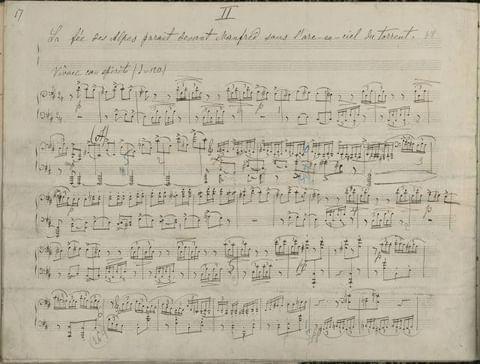 17
II
La fée des Alpes parait devant Manfred sous l'arc-en-ciel du torrent.
Vivace con spirito